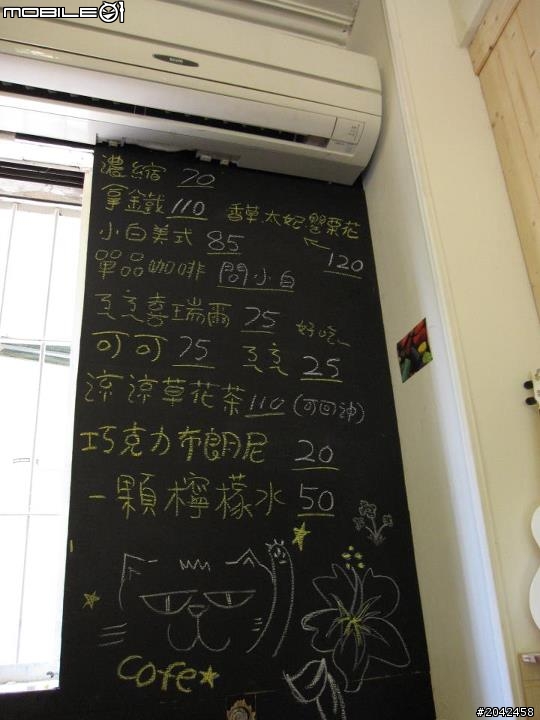 MOBILE01
濃縮 70
拿鐵 110 香草太妃罌粟花
小白美式 85 120
單品咖啡 問小白
ㄋㄟㄋㄟ喜瑞爾 75 好吃~
可可 75 ㄋㄟㄋㄟ 25
涼涼草花茶 110 (可回沖)
巧克力布朗尼 20
一顆檸檬水 50
cofe
#2042458